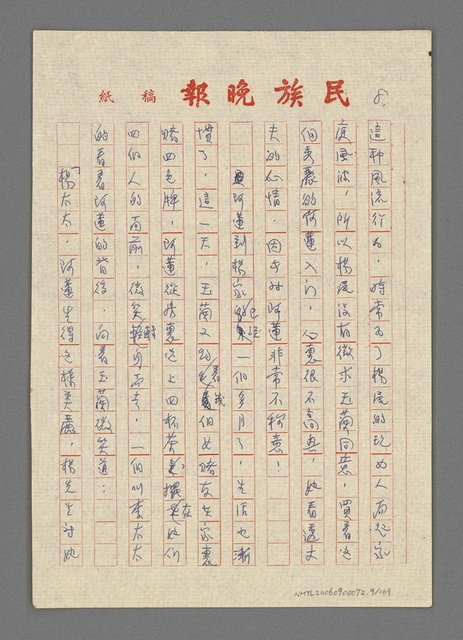 民族晚報 稿紙
8.
這種風流行為，時常為了楊成的玩女人而起家
庭風波，所以楊成沒有徵求玉蘭同意，買着這
個美麗的阿蓮入門，心裏很不高興，她看透丈
夫的心情，因此對阿蓮非常不称意！
阿蓮到楊家已經一個多月了，生活也漸
慣了，這一天，玉蘭又約着幾個女賭友在家裏
賭四色牌，阿蓮從房裏送上四杯茶，擺在她們
四個人的面前，微笑輕輕而去，一個叫李太太
的看看阿蓮的背後，向着玉蘭微笑道：
「楊太太，阿蓮生得这樣美麗，楊先生对她
NMTL20060900072.9/169